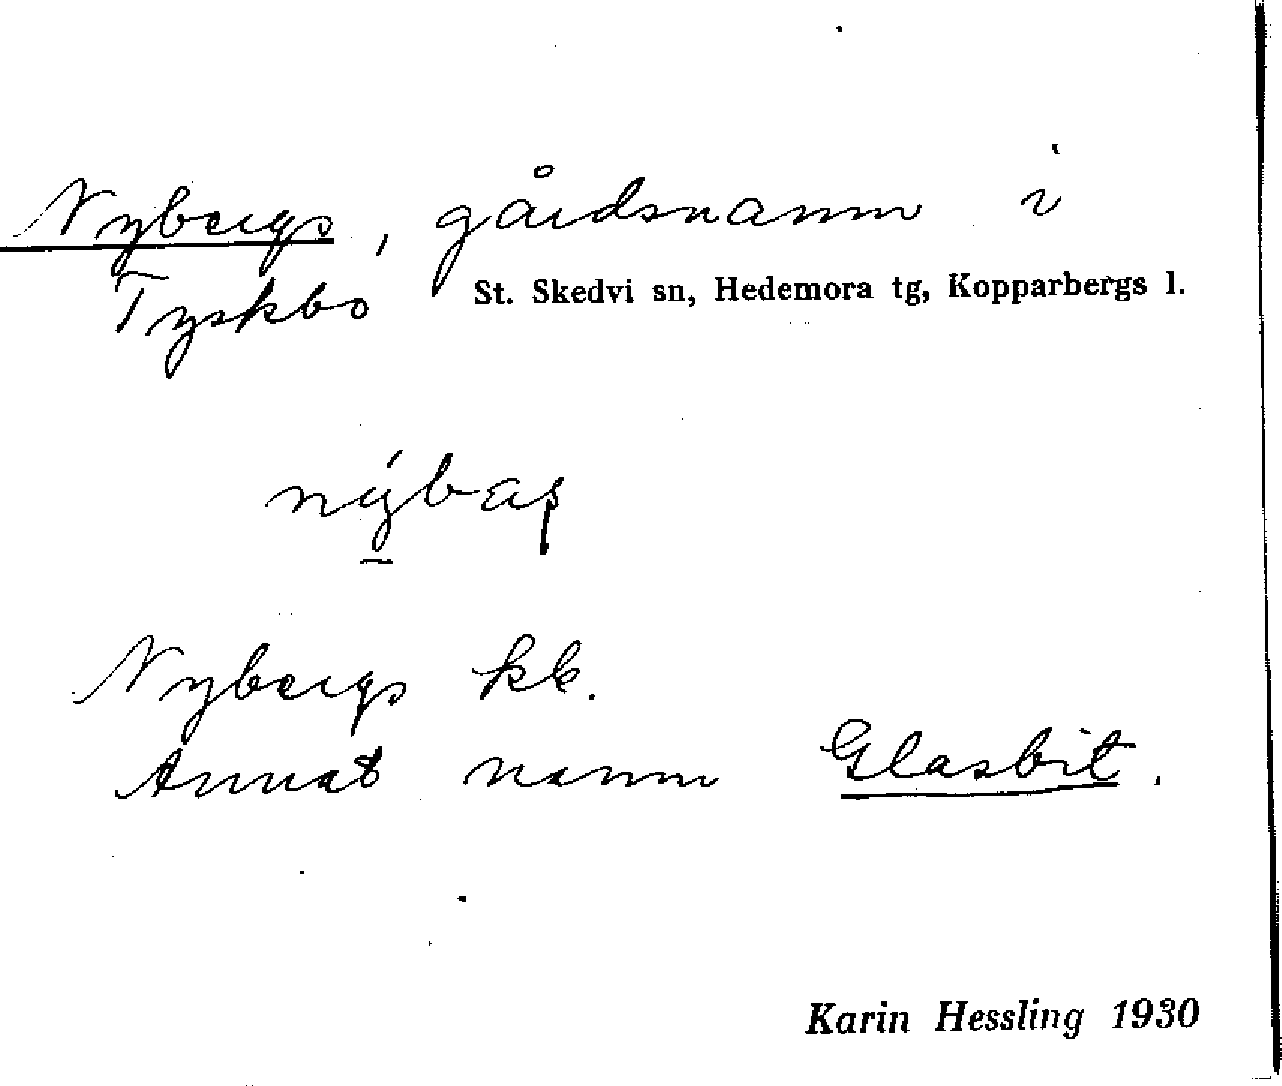 Nybergs, gårdsnamn i
Tyskbo St. Skedvi sn, Hedemora tg, Kopparbergs l.
Nybergs kk.
Annat namn Glasbit.
Karin Hessling 1930